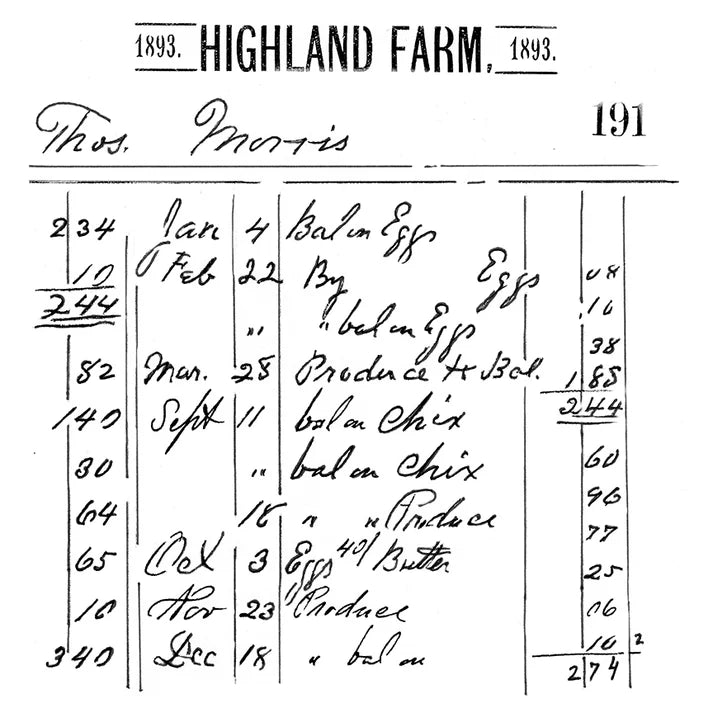 1893. HIGHLAND FARM, 1893.
Thos. Morris 191
2 34 Jan 4 Bal on Eggs
10 Feb 22 By Eggs 08
2 44 " " bal on Eggs 10
38
82 Mar. 28 Produce to Bal. 1 88
1 40 Sept 11 bal on Chix 2 44
30 " bal on Chix 60
64 18 " " Produce 96
77
65 Oct 3 Eggs 40/ Butter 25
10 Nov 23 " Produce 06
10 2
3 40 Dec 18 " bal on 2 74